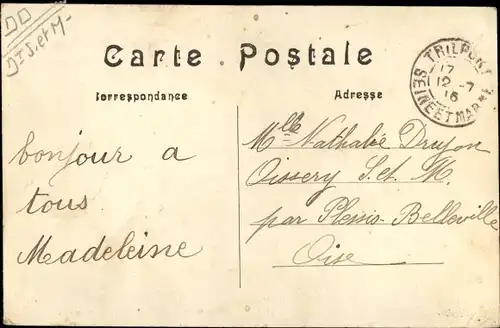 DD
Dts S. et M-
Carte Postale
Correspondance
Adresse
TRILPORT
17
12-7
16
SEINE ET MARNE
bonjour a
tous
Madeleine
Mlle Nathalie Druyon
Oissery S. et M.
par Plessis-Belleville
Oise